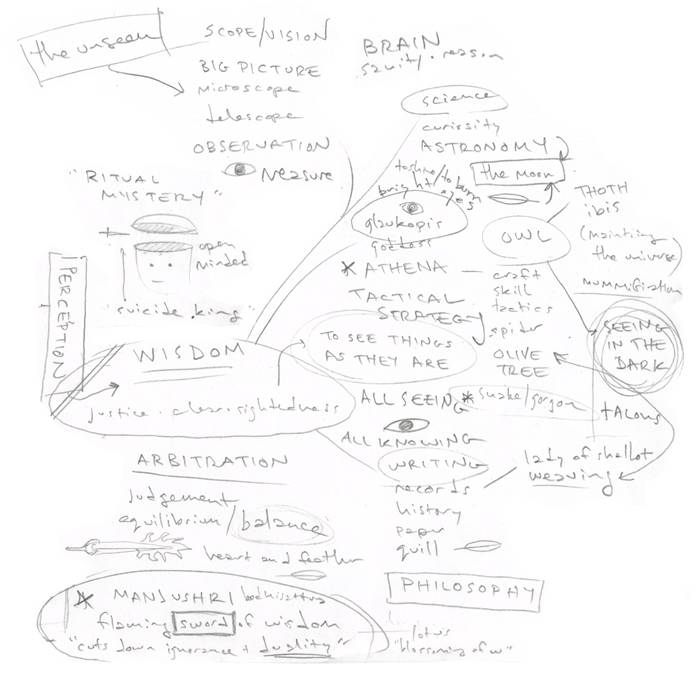 the unseen
SCOPE/VISION
BIG PICTURE
microscope
telescope
OBSERVATION
measure
BRAIN
sanity. reason
science
curiosity
ASTRONOMY
the moon
to shine/to burn
bright eyes
glaukopis
goddess
OWL
THOTH
ibis
(mainting
the universe)
mummification
"RITUAL
MYSTERY"
open
minded
"suicide king"
PERCEPTION
* ATHENA — craft
skill
tactics
spider
TACTICAL
STRATEGY
OLIVE
TREE
SEEING
IN THE
DARK
WISDOM
justice. clear.sightedness
TO SEE THINGS
AS THEY ARE
ALL SEEING
* snake/gorgon
talons
ALL KNOWING
WRITING
records
history
paper
quill
lady of shallot
weaving
ARBITRATION
judgement
equilibrium/balance
heart and feather
PHILOSOPHY
* MANJUSHRI bodhisattva
flaming sword of wisdom
"cuts down ignorance + duality"
lotus
"blossoming of w"